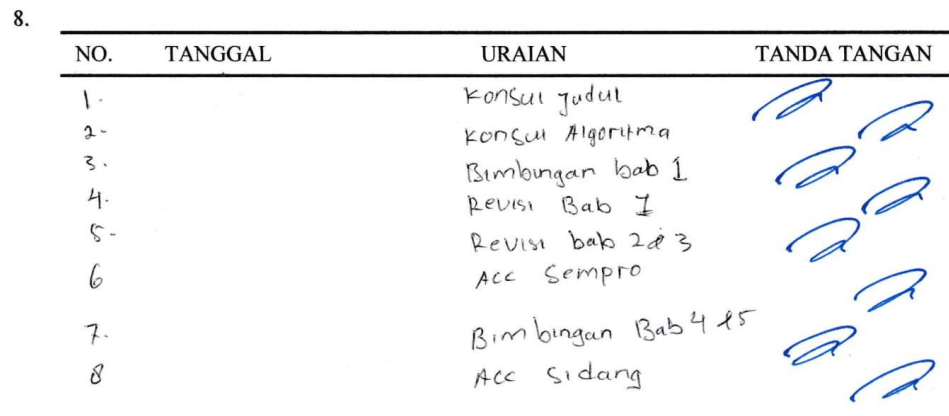 8.
NO. TANGGAL URAIAN TANDA TANGAN
1. Konsul Judul
2- Konsul Algoritma
3. Bimbingan bab 1
4. Revisi Bab I
5- Revisi bab 2&3
6 Acc Sempro
7. Bimbingan Bab 4 &5
8 Acc Sidang